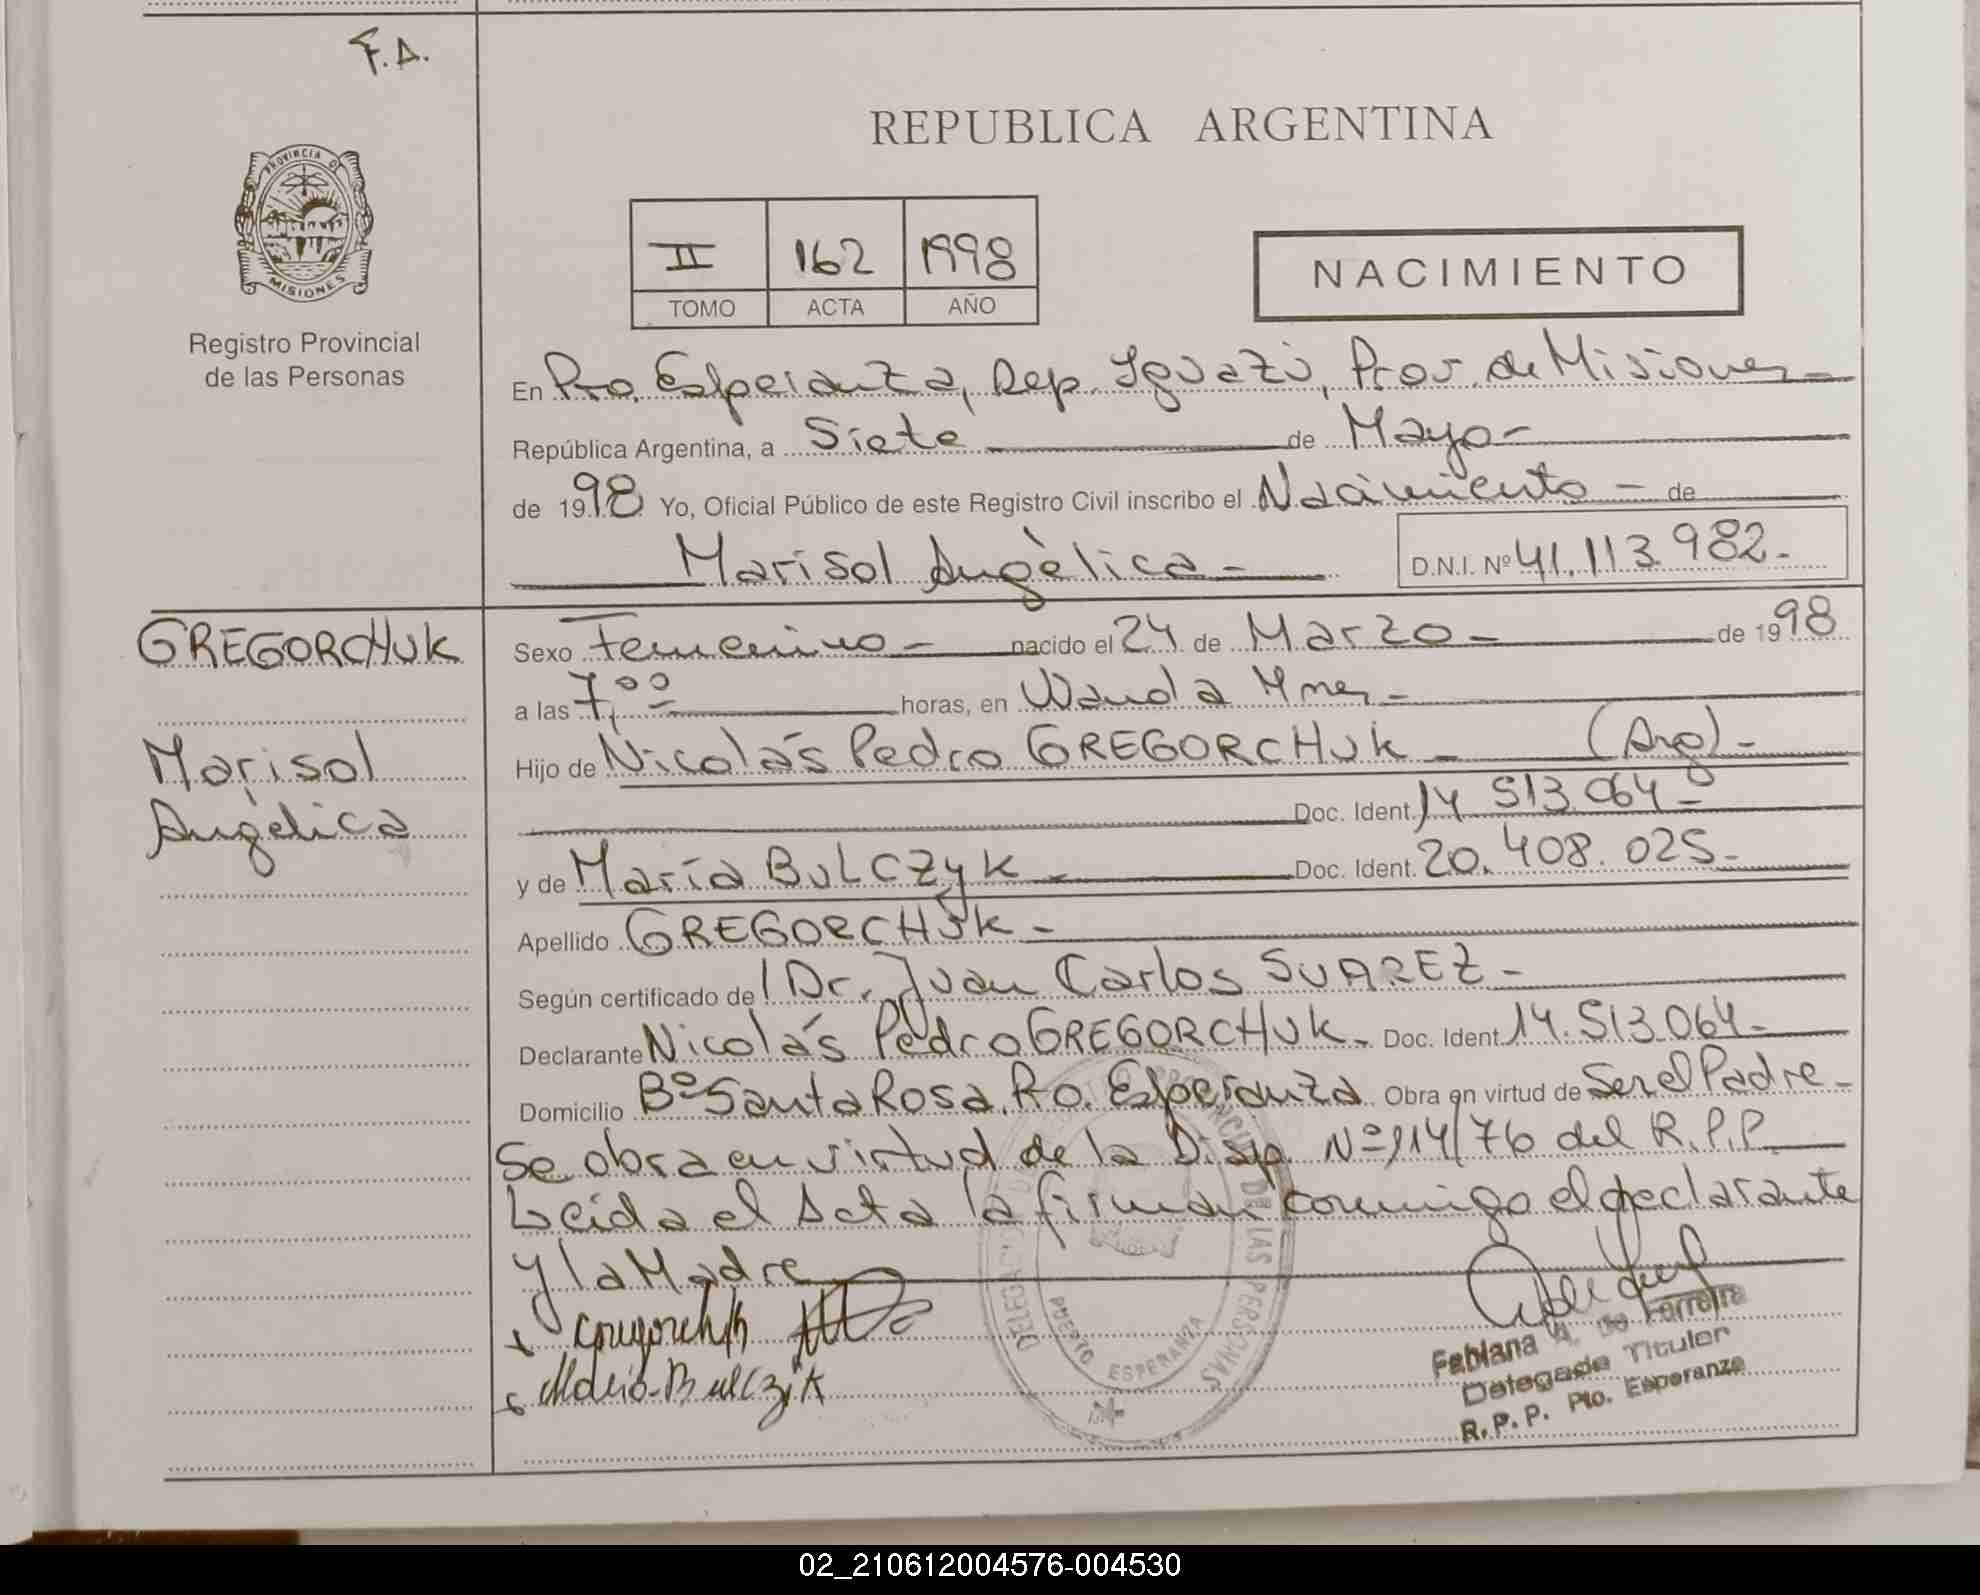 F.A.
REPUBLICA ARGENTINA
PROVINCIA DE
MISIONES
Registro Provincial
de las Personas
II 162 1998
TOMO ACTA AÑO
NACIMIENTO
En Pto. Esperanza, Dep. Iguazú, Prov. de Misiones-
República Argentina, a Siete de Mayo-
de 1998 Yo, Oficial Público de este Registro Civil inscribo el Nacimiento - de
Marisol Angèlica - D.N.I. Nº 41.113.982-
GREGORCHUK
Marisol
Angèlica
Sexo Femenino - nacido el 24 de Marzo - de 1998
a las 7,00 horas, en Wanda Mnes-
Hijo de Nicolás Pedro GREGORCHUK - (Arg)-
Doc. Ident. 14 513.064-
y de María BULCZyK - Doc. Ident. 20.408.025-
Apellido GREGORCHUK -
Según certificado de Dr. Juan Carlos SUAREZ -
Declarante Nicolás Pedro GREGORCHUK - Doc. Ident. 14.513.064-
Domicilio Bº Santa Rosa. Pto. Esperanza Obra en virtud de Ser el Padre -
Se obra en virtud de la Disp. Nº 114/76 del R.P.P.
Leida el Acta la firman conmigo el declarante
y la Madre
Gregorchuk
Maria Bulczik
DELEGACION REGISTRO PROVINCIAL DE LAS PERSONAS
PUERTO ESPERANZA
Fabiana A. De Ferreira
Delegada Titular
R.P.P. Pto. Esperanza
02_210612004576-004530